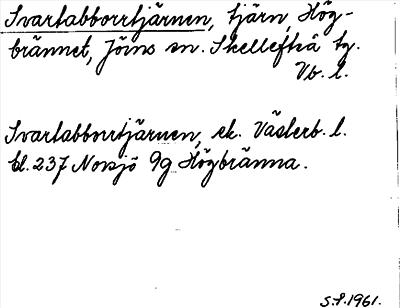 Svartabborrtjärnen, tjärn, Hög-
brännet, Jörns sn. Skellefteå tg.
Vb. l.
Svartabborrtjärnen, ek. Västerb. l.
bl. 237 Norsjö 9g Högbränna.
S.F. 1961.